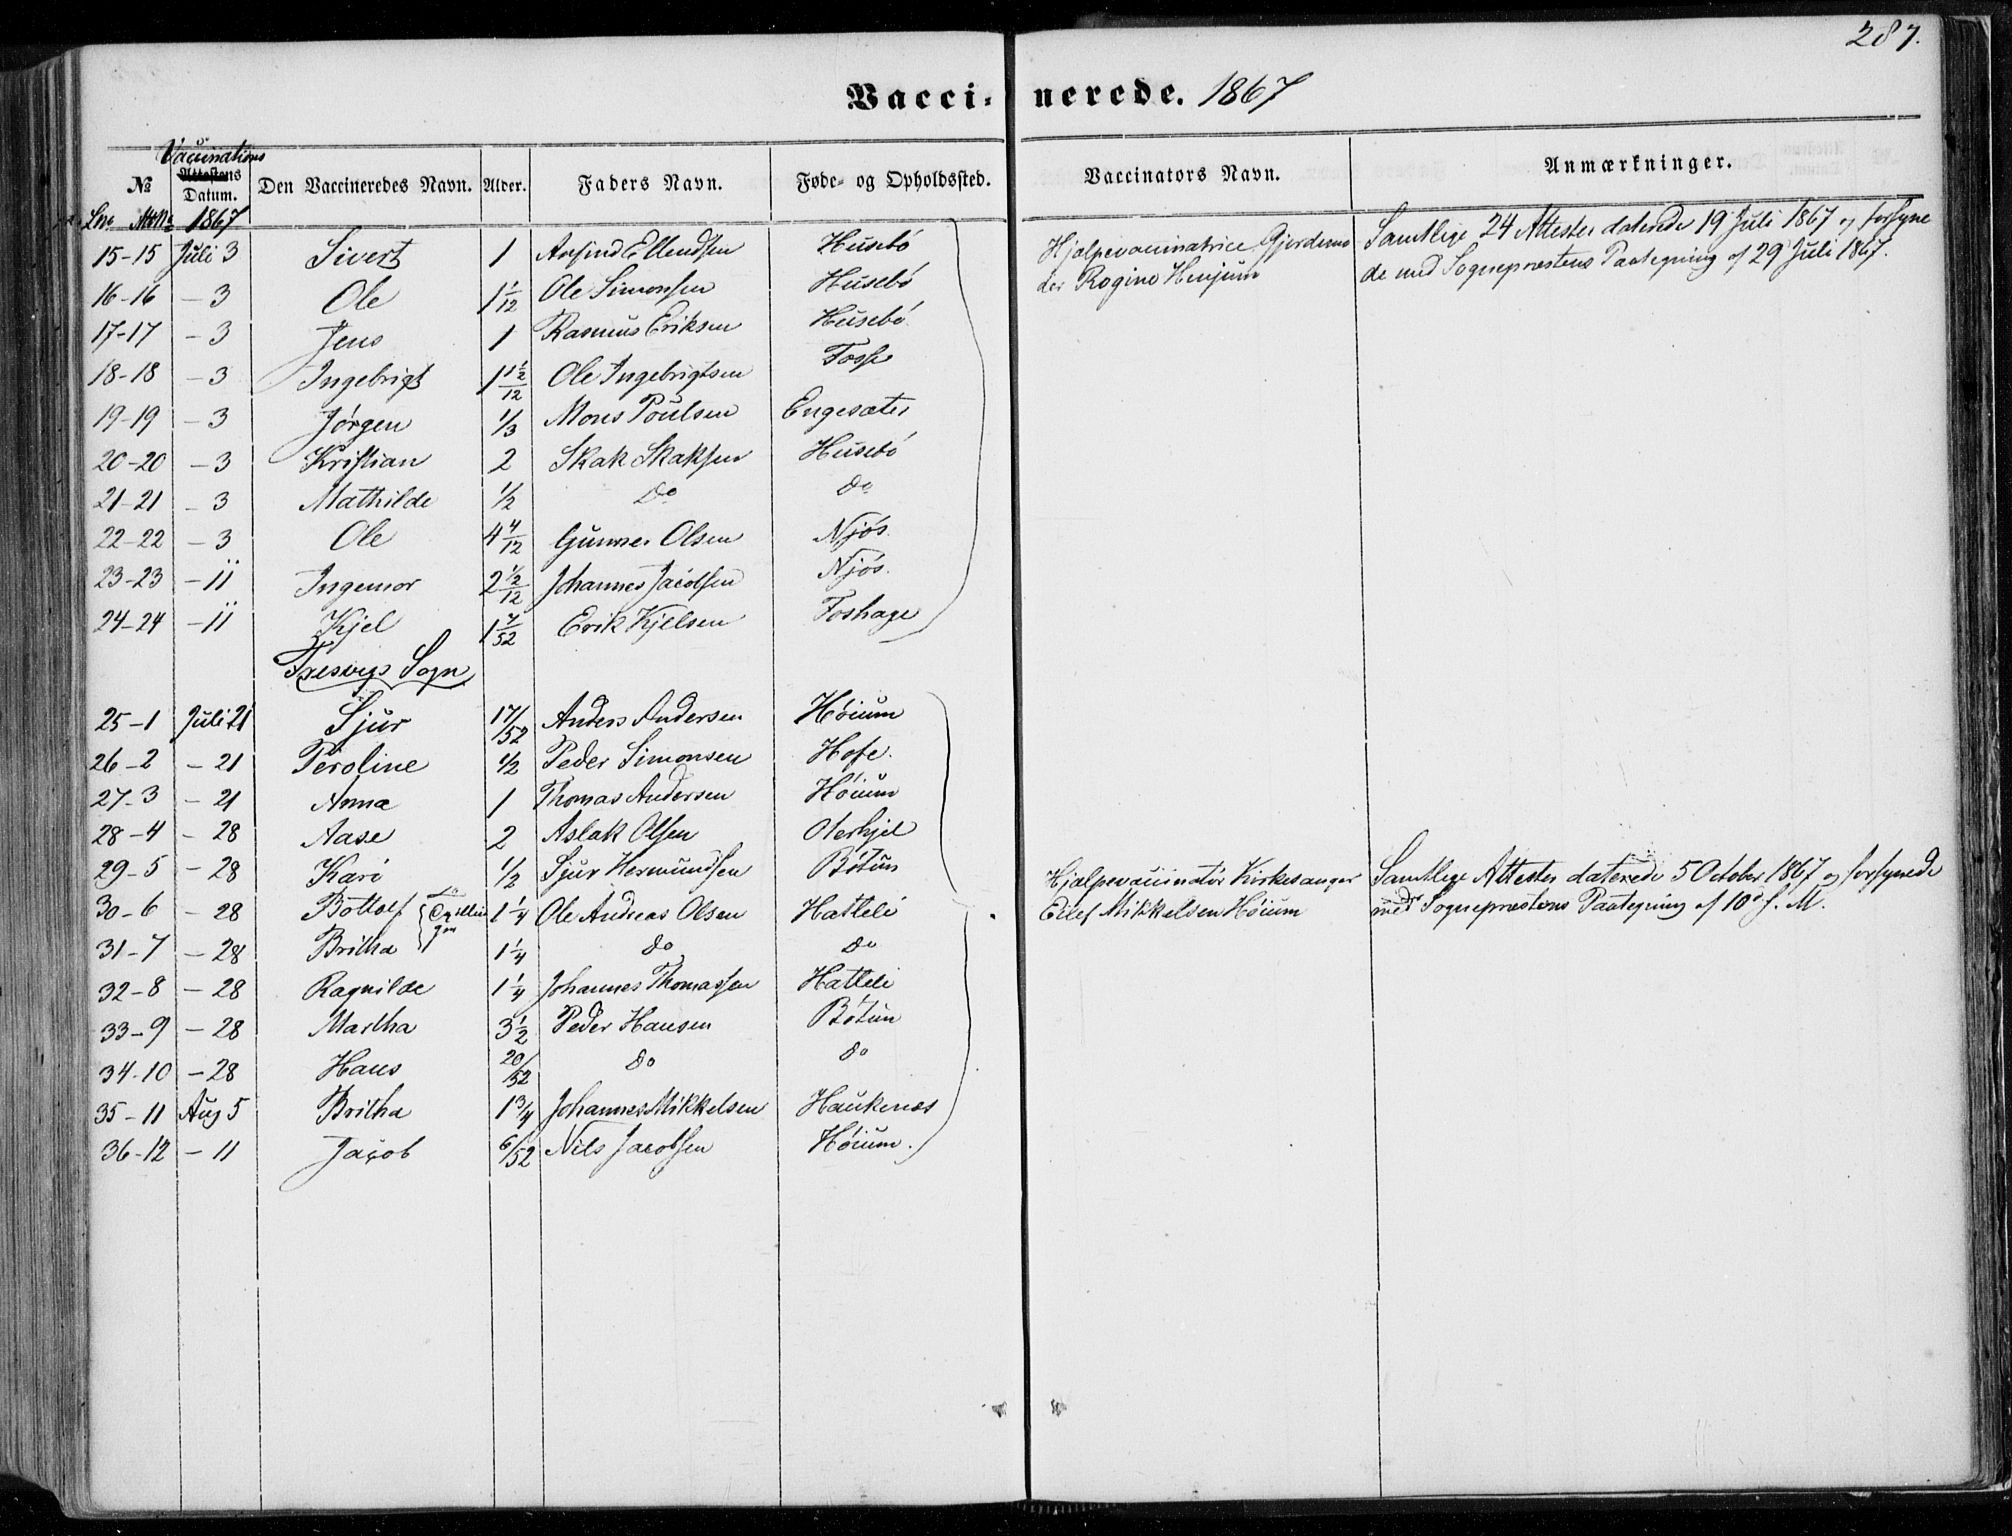 287.
Vacci- nerede. 1867
Vaccinations
№ Attestens Datum. Den Vaccineredes Navn. Alder. Faders Navn. Føde- og Opholdssted. Vaccinators Navn. Anmærkninger.
Lno Att№ 1867
15-15 Juli 3 Sivert 1 Anfind Ellendsen Husebö Hjælpevaccinatrice Gjordemo Samtlige 24 Attester daterede 19 Juli 1867 og forsyne
der Rogine Henjum de med Sognepræstens Paategning af 29 Juli 1867.
16-16 - 3 Ole 1 1/12 Ole Simonsen Husebö
17-17 - 3 Jens 1 Rasmus Eriksen Husebö
18-18 - 3 Ingebrigt 1 1½/12 Ole Ingebrigtsen Fosse
19-19 - 3 Jørgen 1/3 Mons Poulsen Engesæter
20-20 - 3 Kristian 2 Skak Skaksen Husebö
21-21 - 3 Mathilde 1/2 Do Do
22-22 - 3 Ole 4 4/12 Gunner Olsen Njös.
23-23 - 11 Ingemor 2 ½/12 Johannes Jacobsen Njös.
24-24 - 11 Kjel 1 7/52 Erik Kjelsen Foshage
Fresvigs Sogn
25-1 Juli 21 Sjur 17/52 Anders Andersen Höium
26-2 - 21 Peroline 1/2 Peder Simonsen Hofe.
27-3 - 21 Anna 1 Thomas Andersen Höium
28-4 - 28 Aase 2 Aslak Olsen Oterhjel
29-5 - 28 Kari 1/2 Sjur Hermundsen Bötun Hjælpevaccinatör Kirkesanger Samtlige Attester daterede 5 October 1867 og forsynede
30-6 - 28 Bottolf { Tvillin 1 1/4 Ole Andreas Olsen Hatteli Eilef Mikkelsen Höium med Sognepræstens Paategning af 10d s. M.
gen
31-7 - 28 Britha 1 1/4 Do Do
32-8 - 28 Ragnilde 1 1/4 Johannes Thomassen Hatteli
33-9 - 28 Martha 3 1/2 Peder Hansen Bötun
34-10 - 28 Hans 20/52 Do Do
35-11 Aug 5 Britha 1 3/4 Johannes Mikkelsen Haukenes
36-12 - 11 Jacob 6/52 Nils Jacobsen Höium.